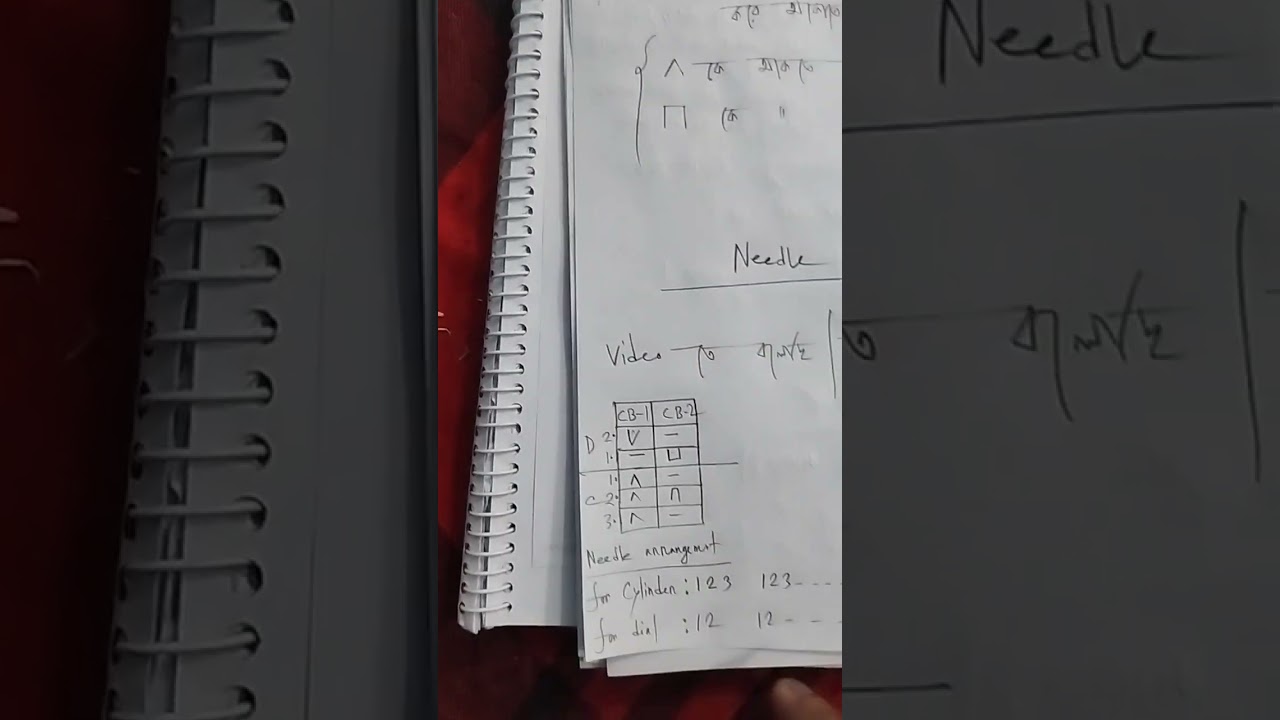 করে
∧ কে থাকতে
⊓ কে "
Needle
Video তে
CB-1 CB-2
D 2. V –
1. – ⊔
1. ∧ –
C 2. ∧ ∩
3. ∧ –
Needle arrangement
for Cylinder : 123 123----
for dial : 12 12- - -